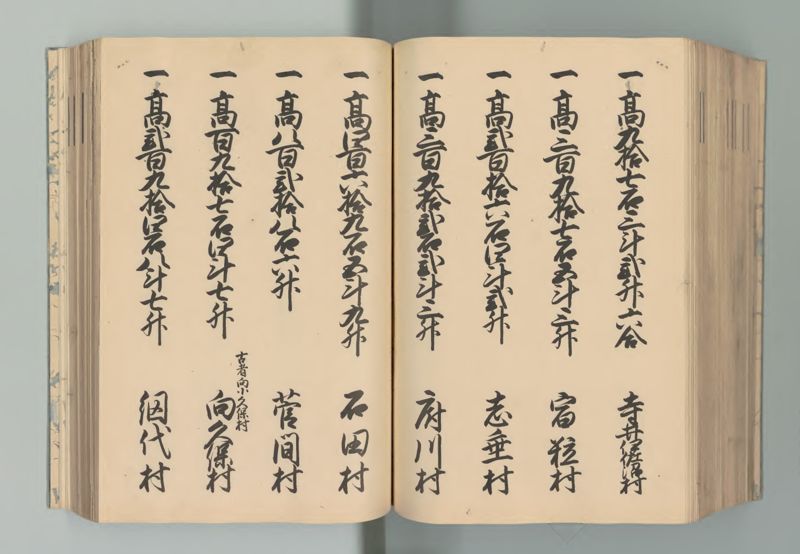 一高九拾七石三斗弐升六合 寺井伊佐沼村
一高三百九拾七石五斗三升 宿粒村
一高弐百拾六石四斗弐升 志垂村
一高三百九拾弐石弐斗三升 府川村
一高四百六拾九石五斗九升 石田村
一高八百弐拾八石六升 菅間村
一高百九拾七石四斗七升 向久保村
古者向小久保村
一高弐百九拾四石八斗七升 網代村